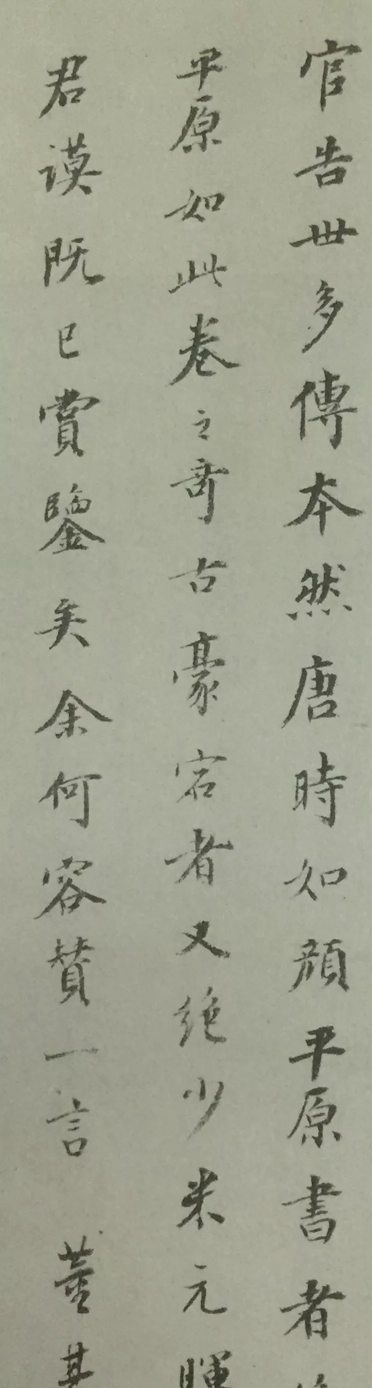 官告世多傳本然唐時如顏平原書者
平原如此卷之奇古豪宕者又絕少米元暉
君謨既已賞鑒矣余何容贊一言 董其